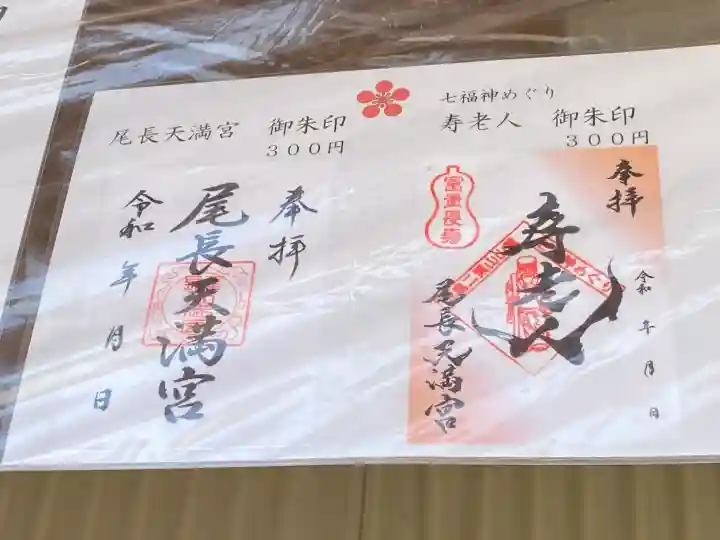 尾長天満宮 御朱印
300円
奉拝
尾長天満宮
令和 年 月 日
七福神めぐり
寿老人 御朱印
300円
奉拝
寿老人
令和 年 月 日
尾長天満宮